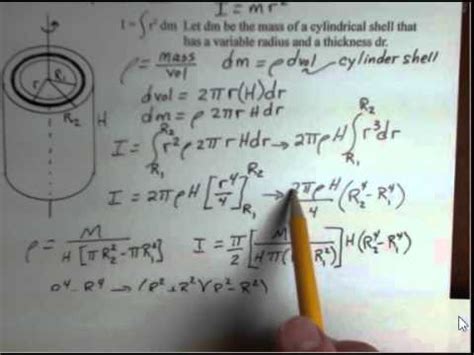 I = mr²
I = ∫r² dm Let dm be the mass of a cylindrical shell that
has a variable radius and a thickness dr.
ρ = mass/vol dm = ρ dvol cylinder shell
dvol = 2πr(H)dr
dm = ρ 2πr H dr
I = ∫_{R₁}^{R₂} r² ρ 2πr H dr → 2πρH ∫_{R₁}^{R₂} r³ dr
I = 2πρH [r⁴/4]_{R₁}^{R₂} → 2πρH/4 (R₂⁴ - R₁⁴)
ρ = M/H[πR₂² - πR₁²] I = π/2 [M/Hπ( R₁²)] H (R₂⁴ - R₁⁴)
r
R₁
R₂
H